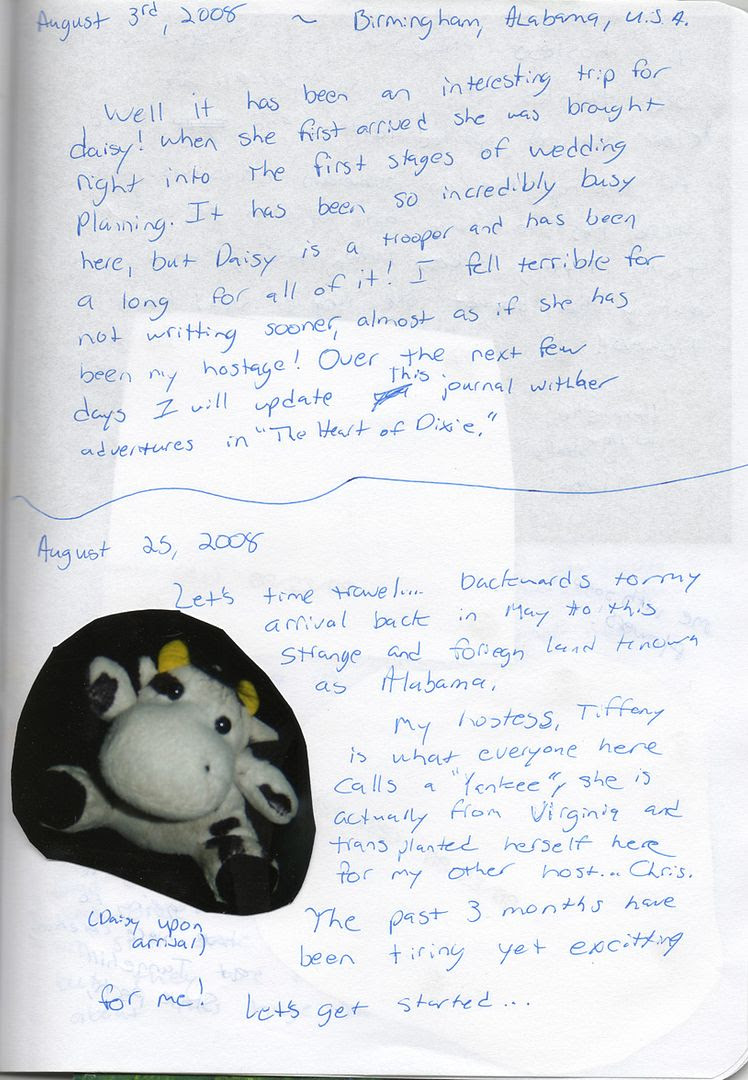 August 3rd, 2008 ~ Birmingham, Alabama, U.S.A.
Well it has been an interesting trip for
daisy! when she first arrived she was brought
right into the first stages of wedding
Planning. It has been so incredibly busy
here, but Daisy is a trooper and has been
a long for all of it! I fell terrible for
not writting sooner, almost as if she has
been my hostage! Over the next few
days I will update this journal with her
adventures in "The Heart of Dixie."
August 25, 2008
Let's time travel... backwards to my
arrival back in May to this
strange and foriegn land known
as Alabama.
My hostess, Tiffany
is what everyone here
calls a "Yankee", she is
actually from Virginia and
trans planted herself here
for my other host... Chris.
The past 3 months have
been tiring yet excitting
(Daisy upon
arrival)
for me! Let's get started...